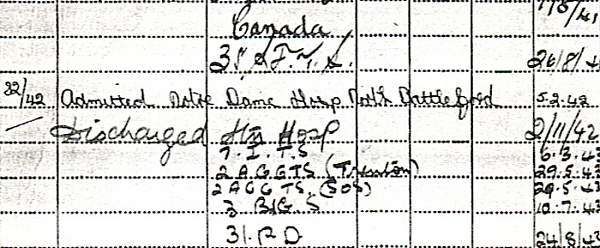 Canada
26/8/4
32/42 Admitted Notre Dame Hosp North Battleford 5.2.42
Discharged Hosp 2/11/42
7. I. T. S 6.3.43
2 A G G T S (Trenton) 29.5.43
2 A G G T S. (SOS) 29.5.43
3 B. G. S 10.7.43
31. P D 24/8/43